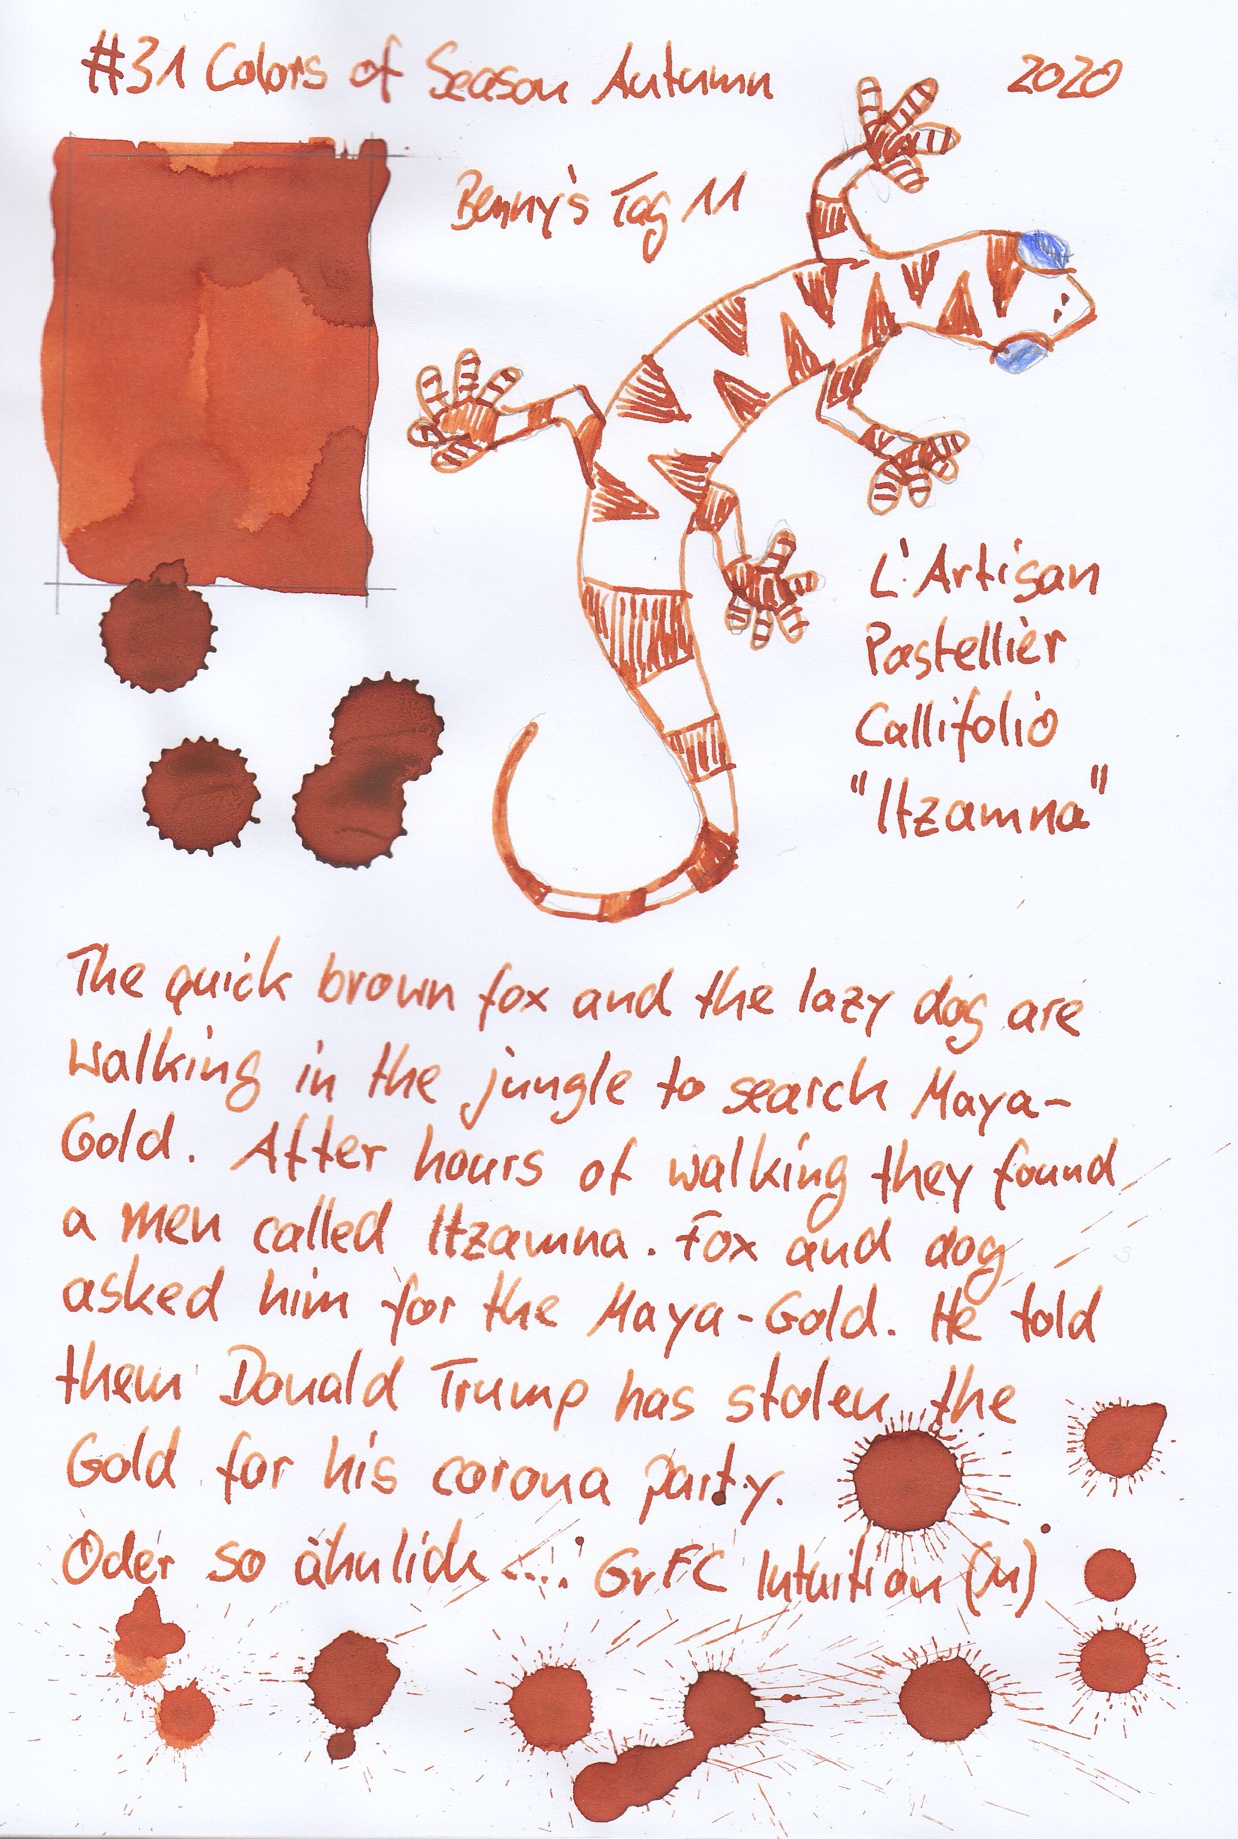 #31 Colors of Season Autumn 2020
Benny's Tag 11
L'Artisan
Pastellier
Callifolio
"Itzamna"
The quick brown fox and the lazy dog are
walking in the jungle to search Maya-
Gold. After hours of walking they found
a men called Itzamna. Fox and dog
asked him for the Maya-Gold. He told
them Donald Trump has stolen the
Gold for his corona party.
Oder so ähnlich <...: GvFC Intuition (M)